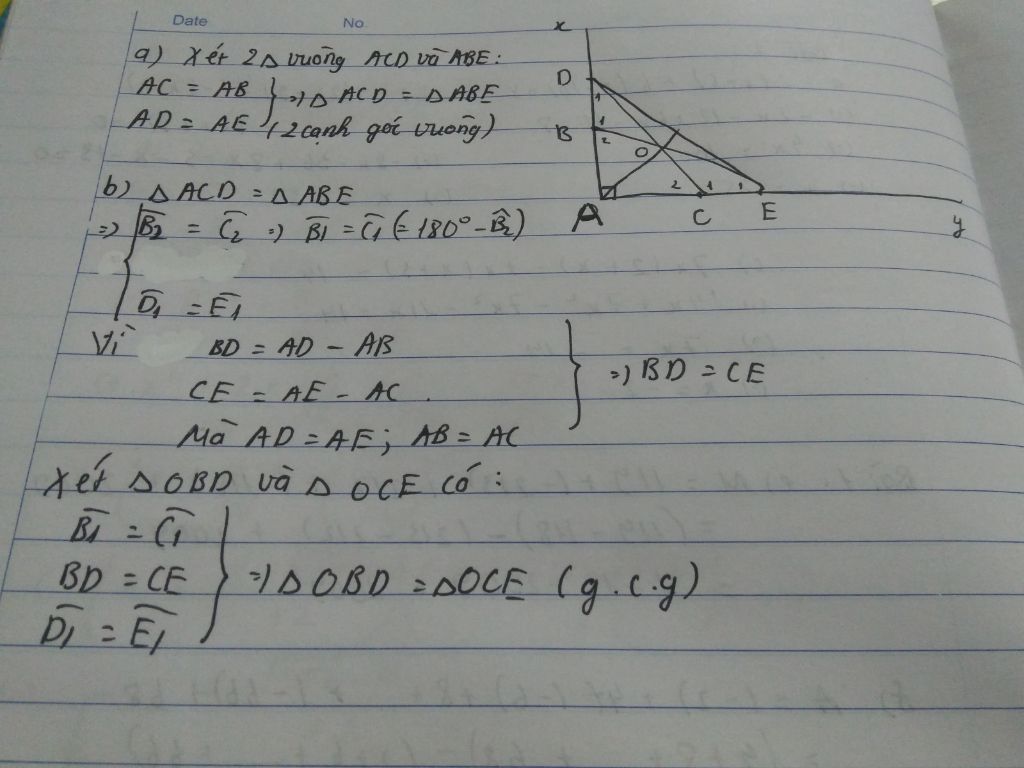 Date No
a) Xét 2 Δ vuông ACD và ABE:
AC = AB
AD = AE } => Δ ACD = Δ ABE
(2 cạnh góc vuông)
b) Δ ACD = Δ ABE
=> { B̂2 = Ĉ2 => B̂1 = Ĉ1 (= 180° - B̂2)
D̂1 = Ê1
Vì BD = AD - AB
CE = AE - AC.
Mà AD = AE; AB = AC } => BD = CE
Xét Δ OBD và Δ OCE có:
B̂1 = Ĉ1
BD = CE } => Δ OBD = Δ OCE (g.c.g)
D̂1 = Ê1
x
D
1
B 1
2
O
2 1 1
A C E
y